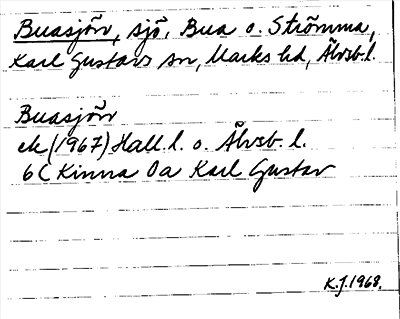 Buasjön, sjö, Bua o. Strömma,
Karl Gustavs sn, Marks hd, Älvsb. l.
Buasjön
ek (1967) Hall. l. o. Älvsb. l.
6C Kinna 0a Karl Gustav
K.J. 1968.